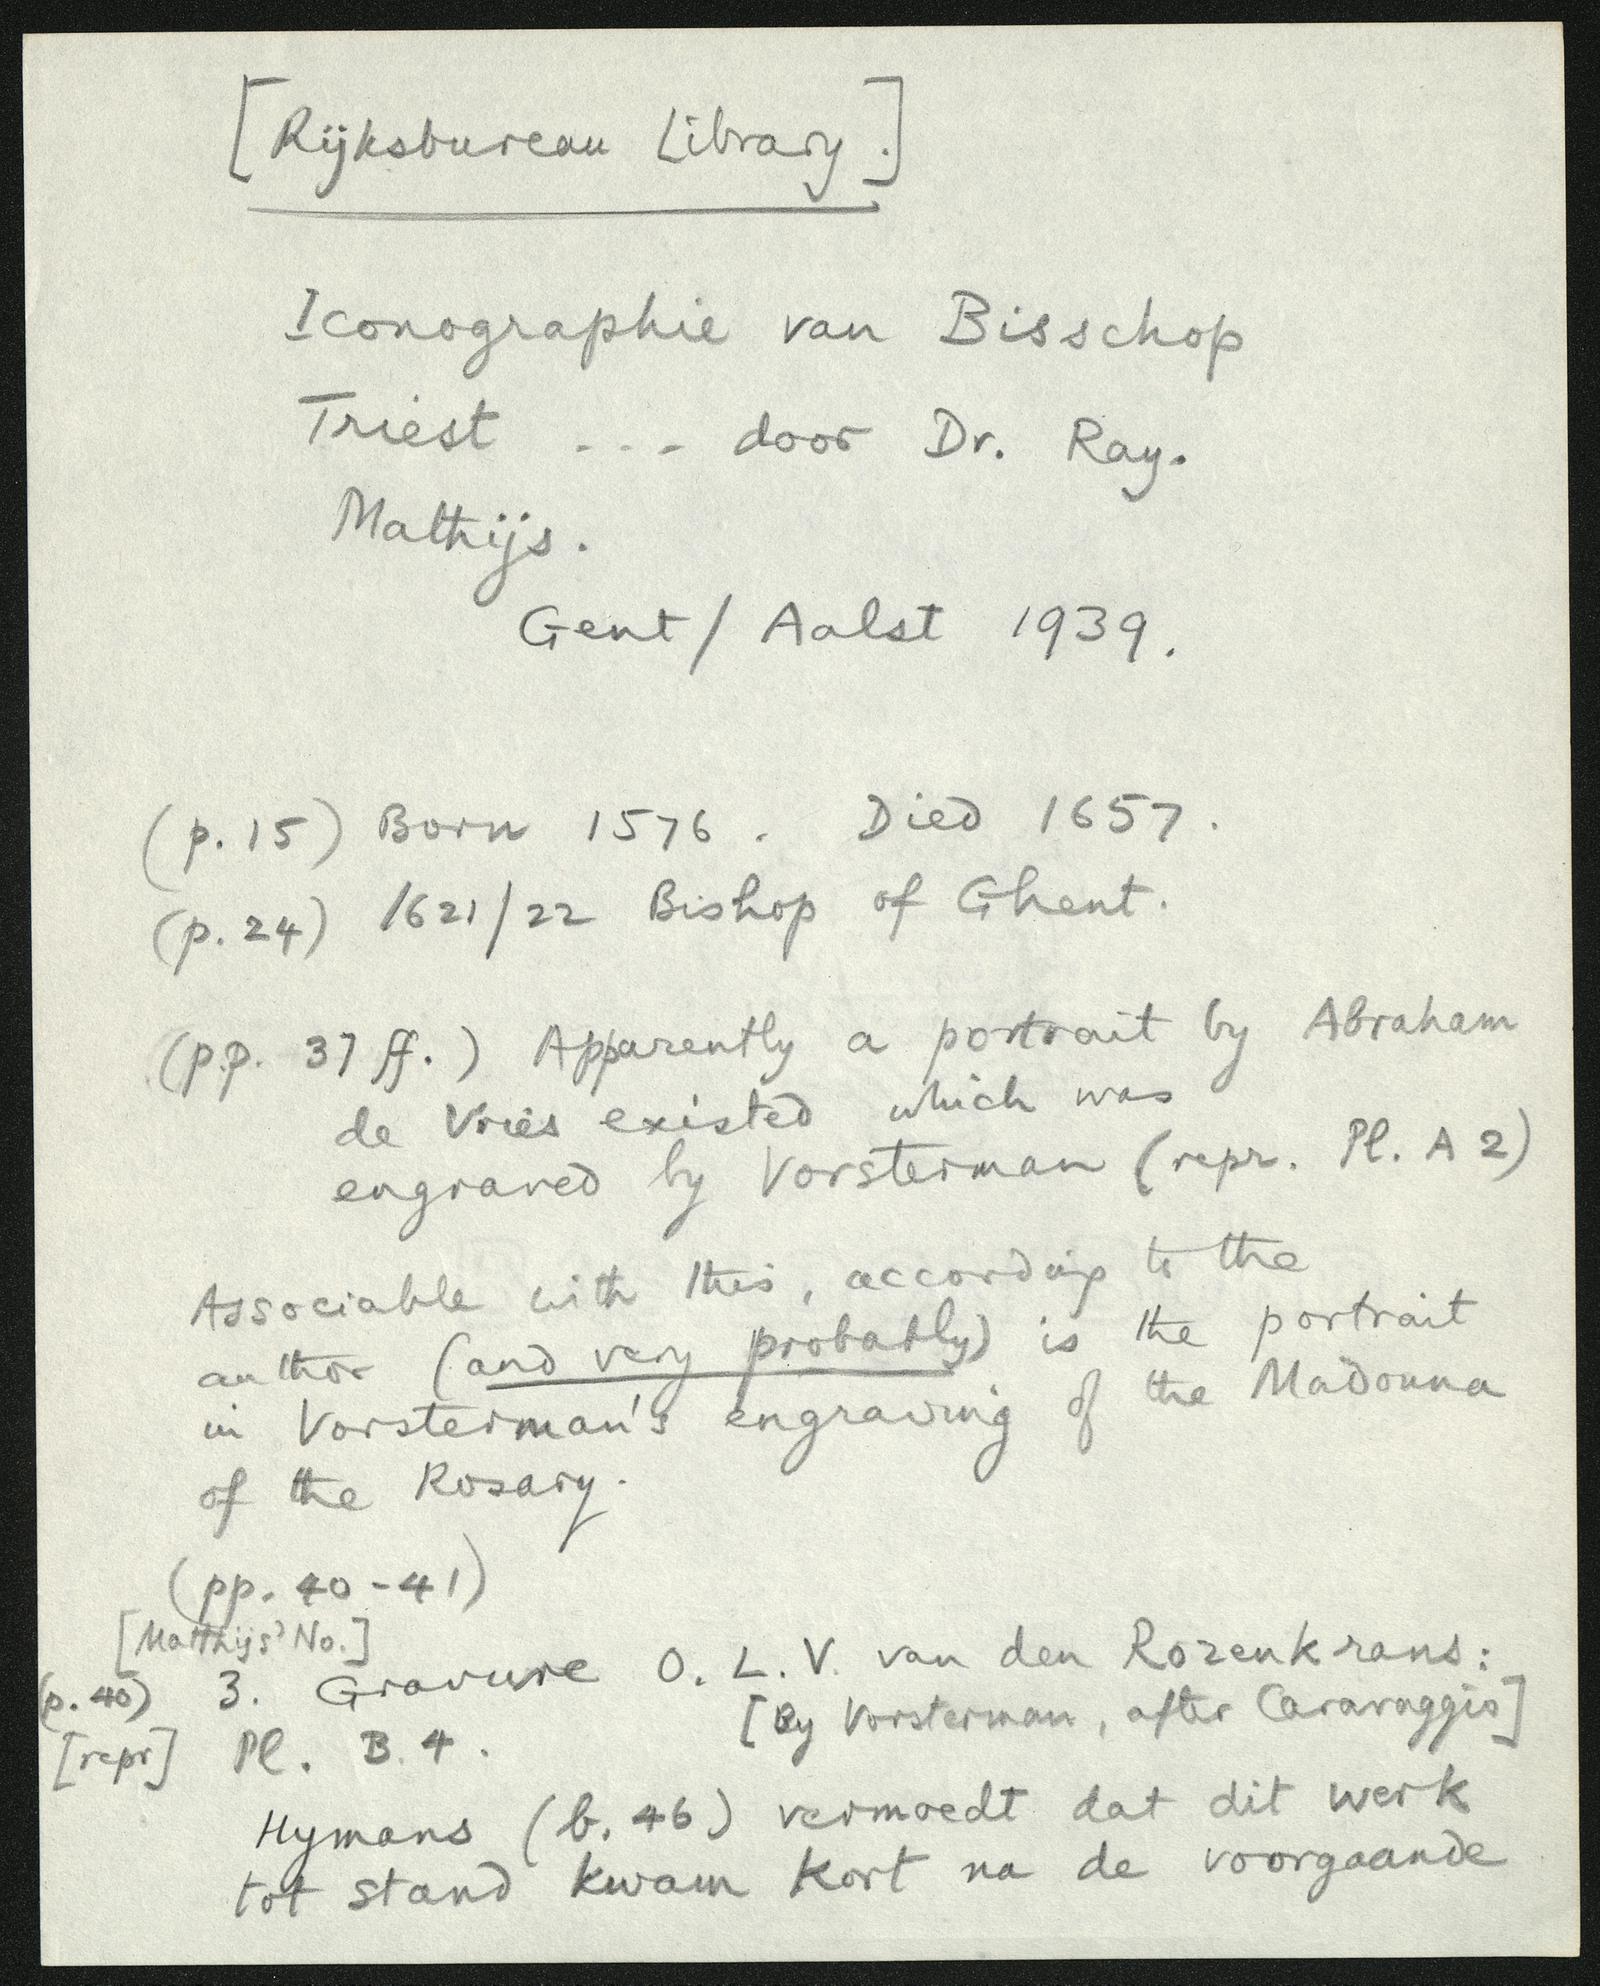 [Rijksbureau Library.]
Iconographie van Bisschop
Triest --- door Dr. Ray.
Mathijs.
Gent/ Aalst 1939.
(p. 15) Born 1576. Died 1657.
(p. 24) 1621/22 Bishop of Ghent.
(pp. 37 ff.) Apparently a portrait by Abraham
de Vries existed which was
engraved by Vorsterman (repr. Pl. A 2)
Associable with this, according to the
author (and very probably) is the portrait
in Vorsterman's engraving of the Madonna
of the Rosary.
(pp. 40-41)
[Matthijs' No.]
(p. 40) 3. Gravure O. L. V. van den Rozenkrans:
[By Vorsterman, after Caravaggio]
[repr] Pl. B. 4.
Hymans (b. 46) vermoedt dat dit werk
tot stand kwam kort na de voorgaande